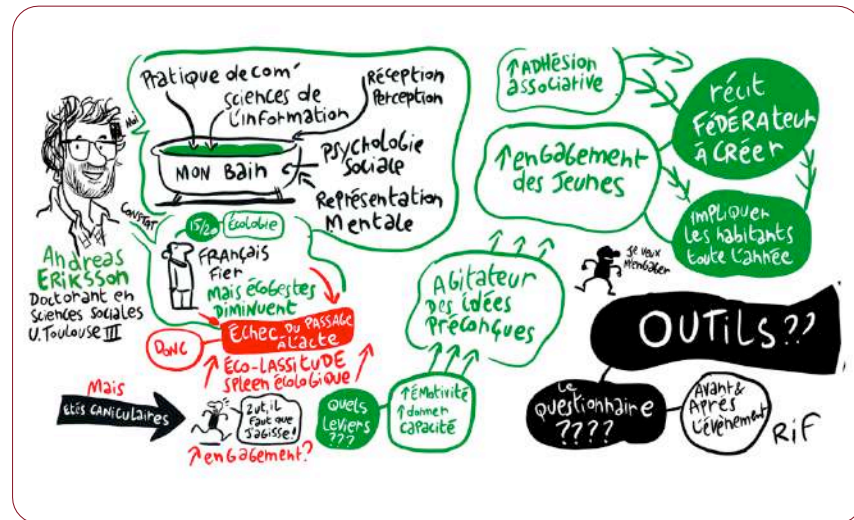 Moi
Pratique de com'
sciences de
l'information
Réception
Perception
MON Bain
Psychologie
Sociale
Représentation
Mentale
CONSTAT
Andreas
ERIKSSON
Doctorant en
Sciences Sociales
U. Toulouse III
15/20
Écologie
FRANÇAIS
Fier
Mais écogestes
DIMINUENT
DONC
Échec DU PASSAGE
À L'ACTE
↑ ÉCO-LASSITUDE ↑
SPLEEN écologique
Mais
ETÉS CANICULAIRES
Zut, il
FAUT QUE
J'AGISSE!
↑ engagement?
QUELS
Leviers
???
↑ ÉMOTIVITÉ
↑ donner
CAPACITÉ
AGITATEUR
DES IDÉES
PRÉCONÇUES
↑ ADHÉSION
associative
↑ engagement
des Jeunes
récit
FÉDÉRATEUR
À CRÉER
IMPLIQUER
Les habitants
toute l'année
Je veux
M'ENGAGER
OUTILS ??
Le
questionnaire
????
Avant &
Après
L'ÉVÉNEMENT
RiF